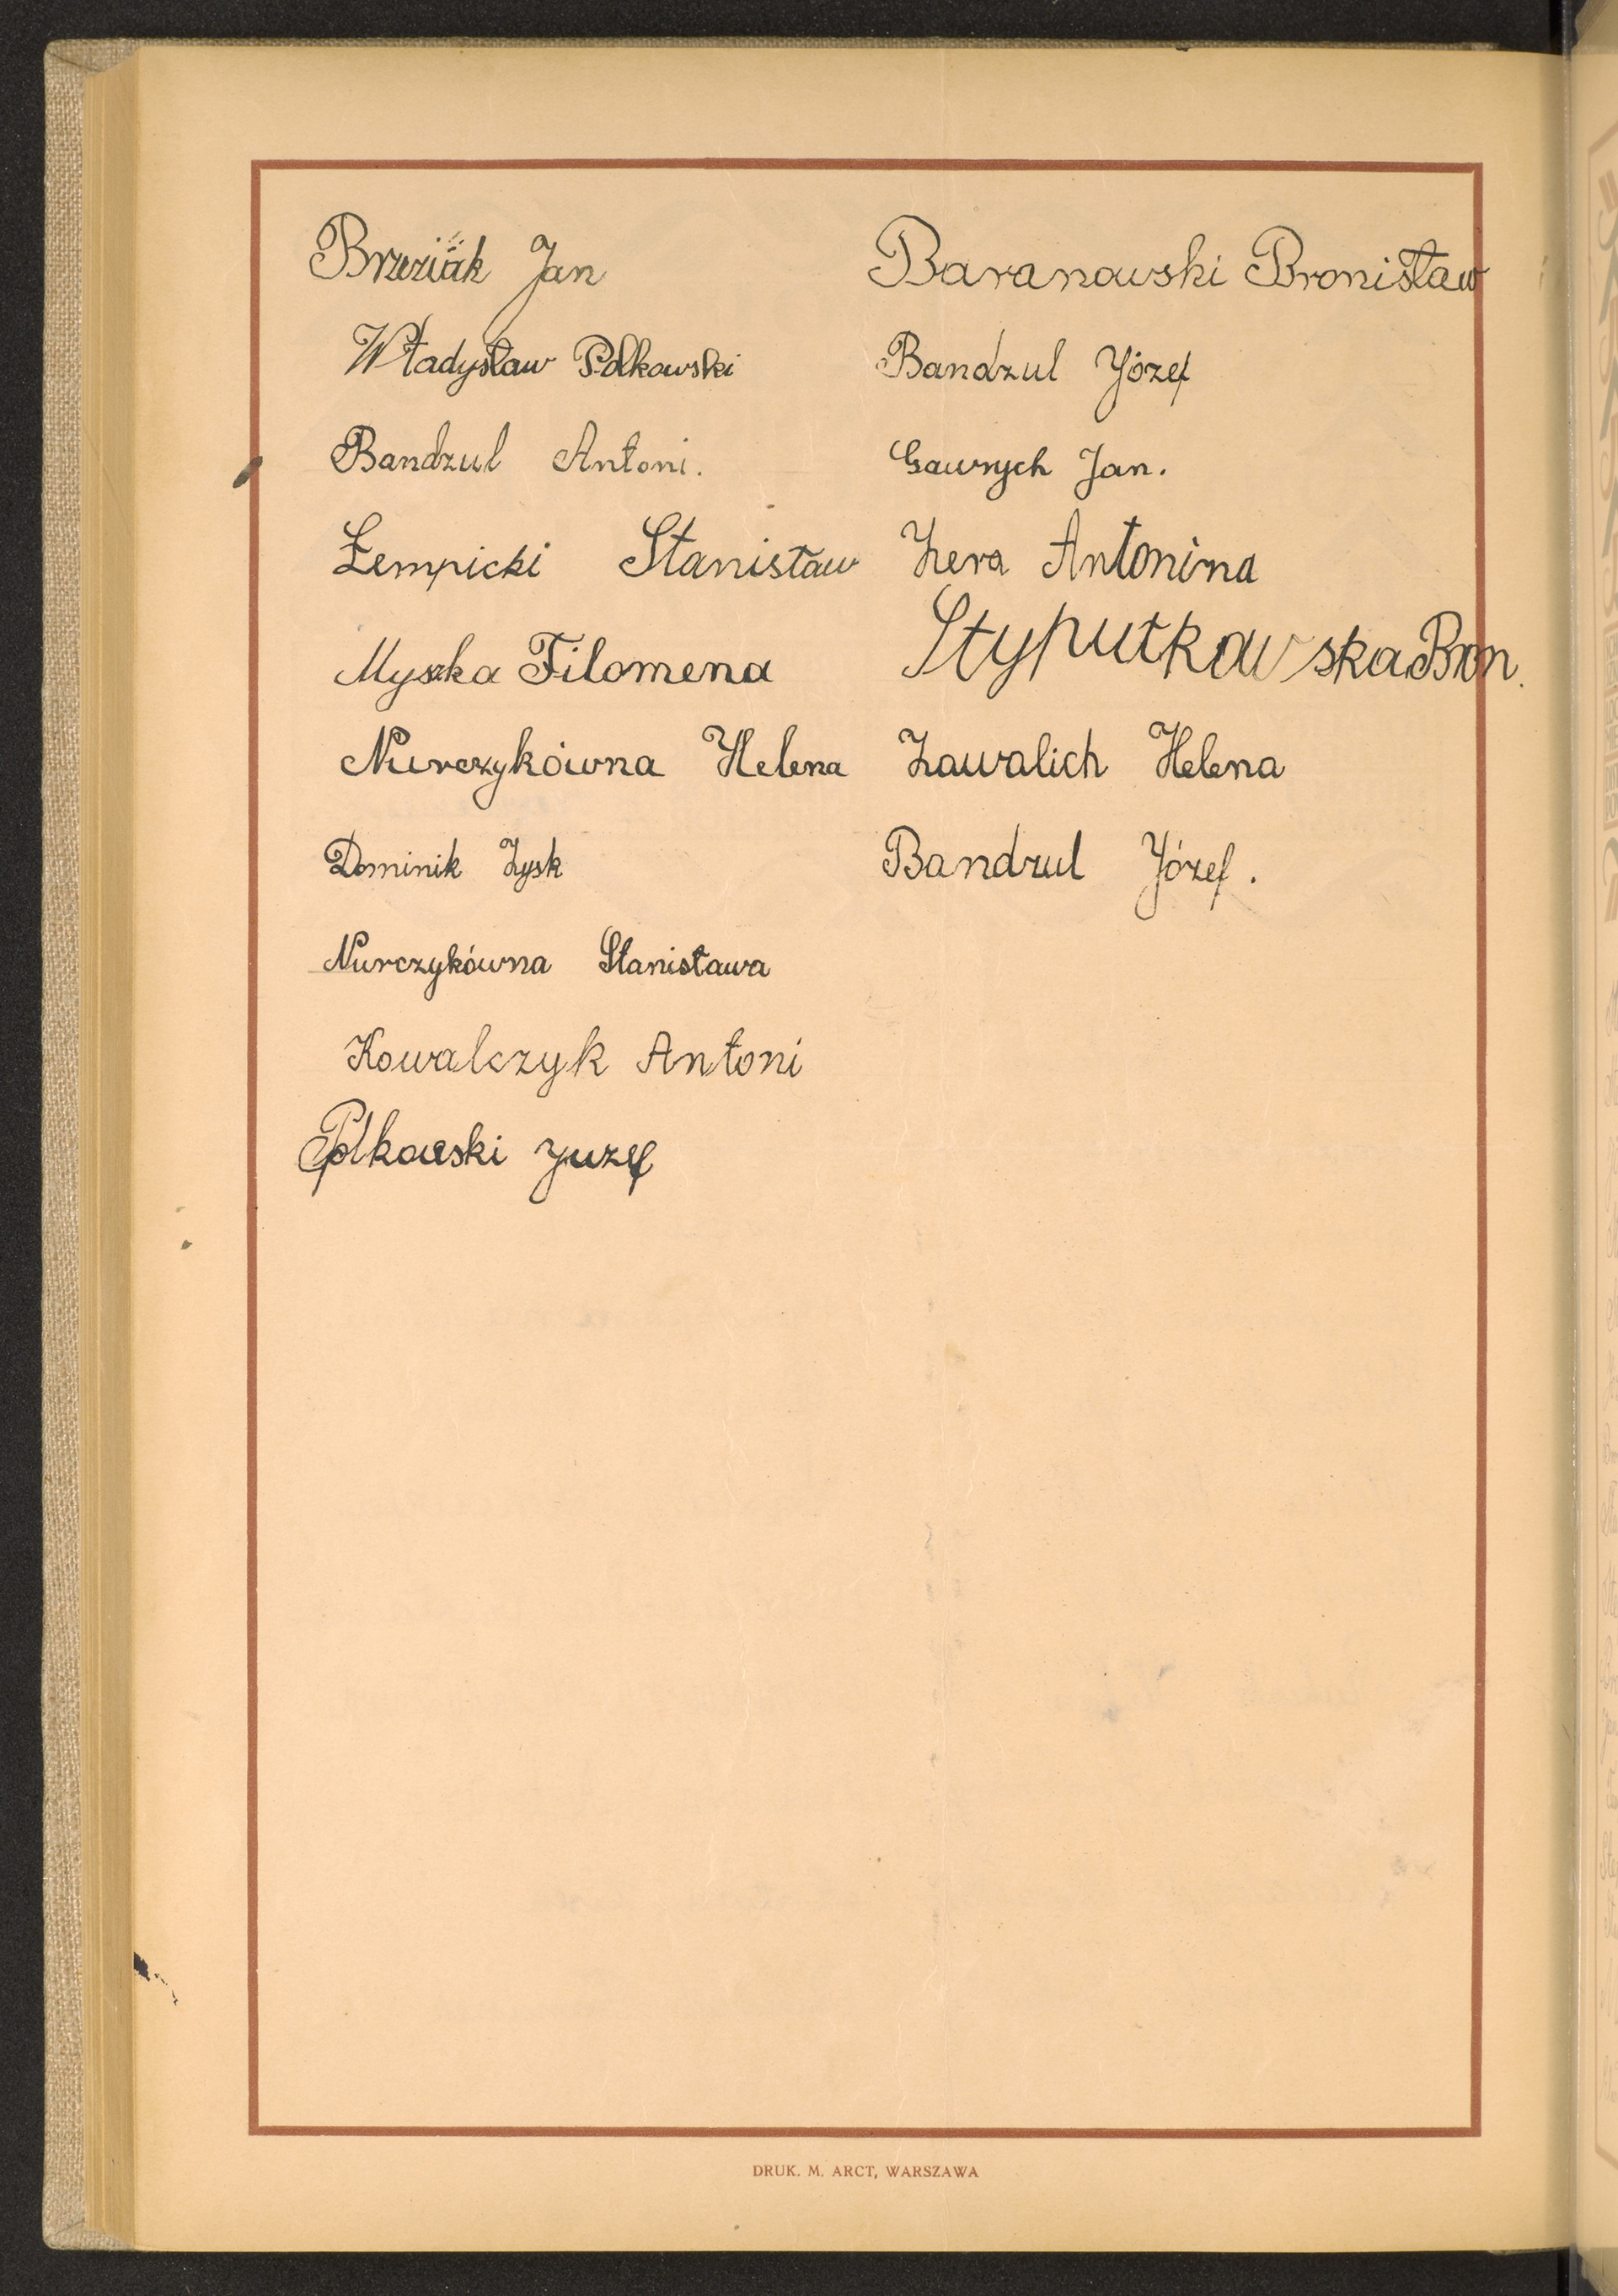 Brzeziak Jan
Władysław Polkowski
Bandzul Antoni.
Łempicki Stanisław
Myszka Filomena
Nurczykówna Helena
Dominik Zysk
Nurczykówna Stanisława
Kowalczyk Antoni
Polkowski Juzef
Baranowski Bronisław
Bandzul Józef
Gawrych Jan.
Zera Antonina
Stypułkowska Bron.
Zawalich Helena
Bandzul Józef.
DRUK. M. ARCT, WARSZAWA